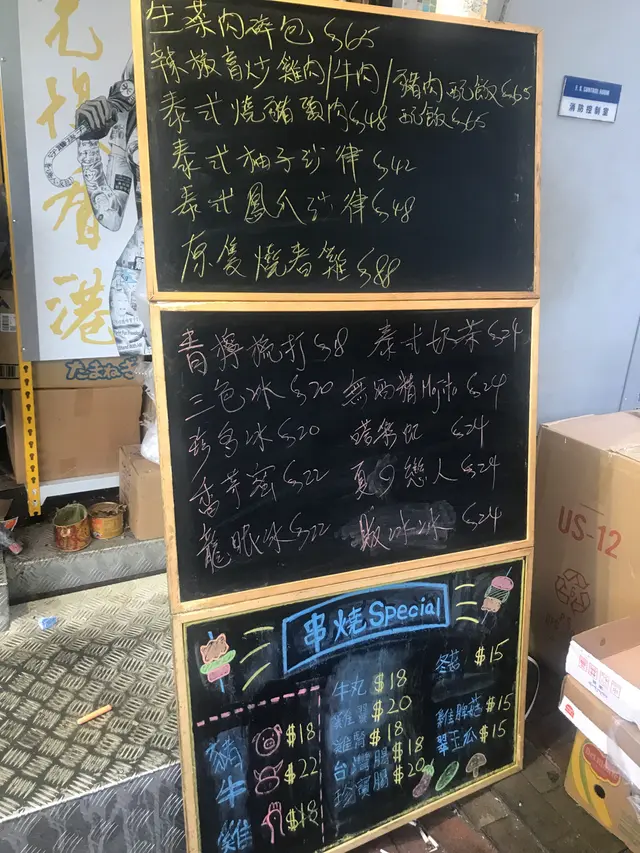 生菜肉碎包 $65
辣椒膏炒雞肉/牛肉/豬肉配飯$65
泰式燒豬頸肉$48 配飯$65
泰式柚子沙律 $42
泰式鳳爪沙律$48
原隻燒春雞 $88
青檸梳打 $8 泰式奶茶 $24
三色冰 $20 無酒精Mojito $24
珍多冰 $20 $24
香芋蜜 $22 夏日戀人 $24
龍眼冰 $22 $24
串燒Special
豬 $18
牛 $22
雞 $18
牛丸 $18
雞翼 $20
雞腎 $18
台灣腸 $18
珍寶腸 $20
冬菇 $15
雞髀菇 $15
翠玉瓜 $15
F. S. CONTROL ROOM
消防控制室
光撐香港
たまねぎ
US-12